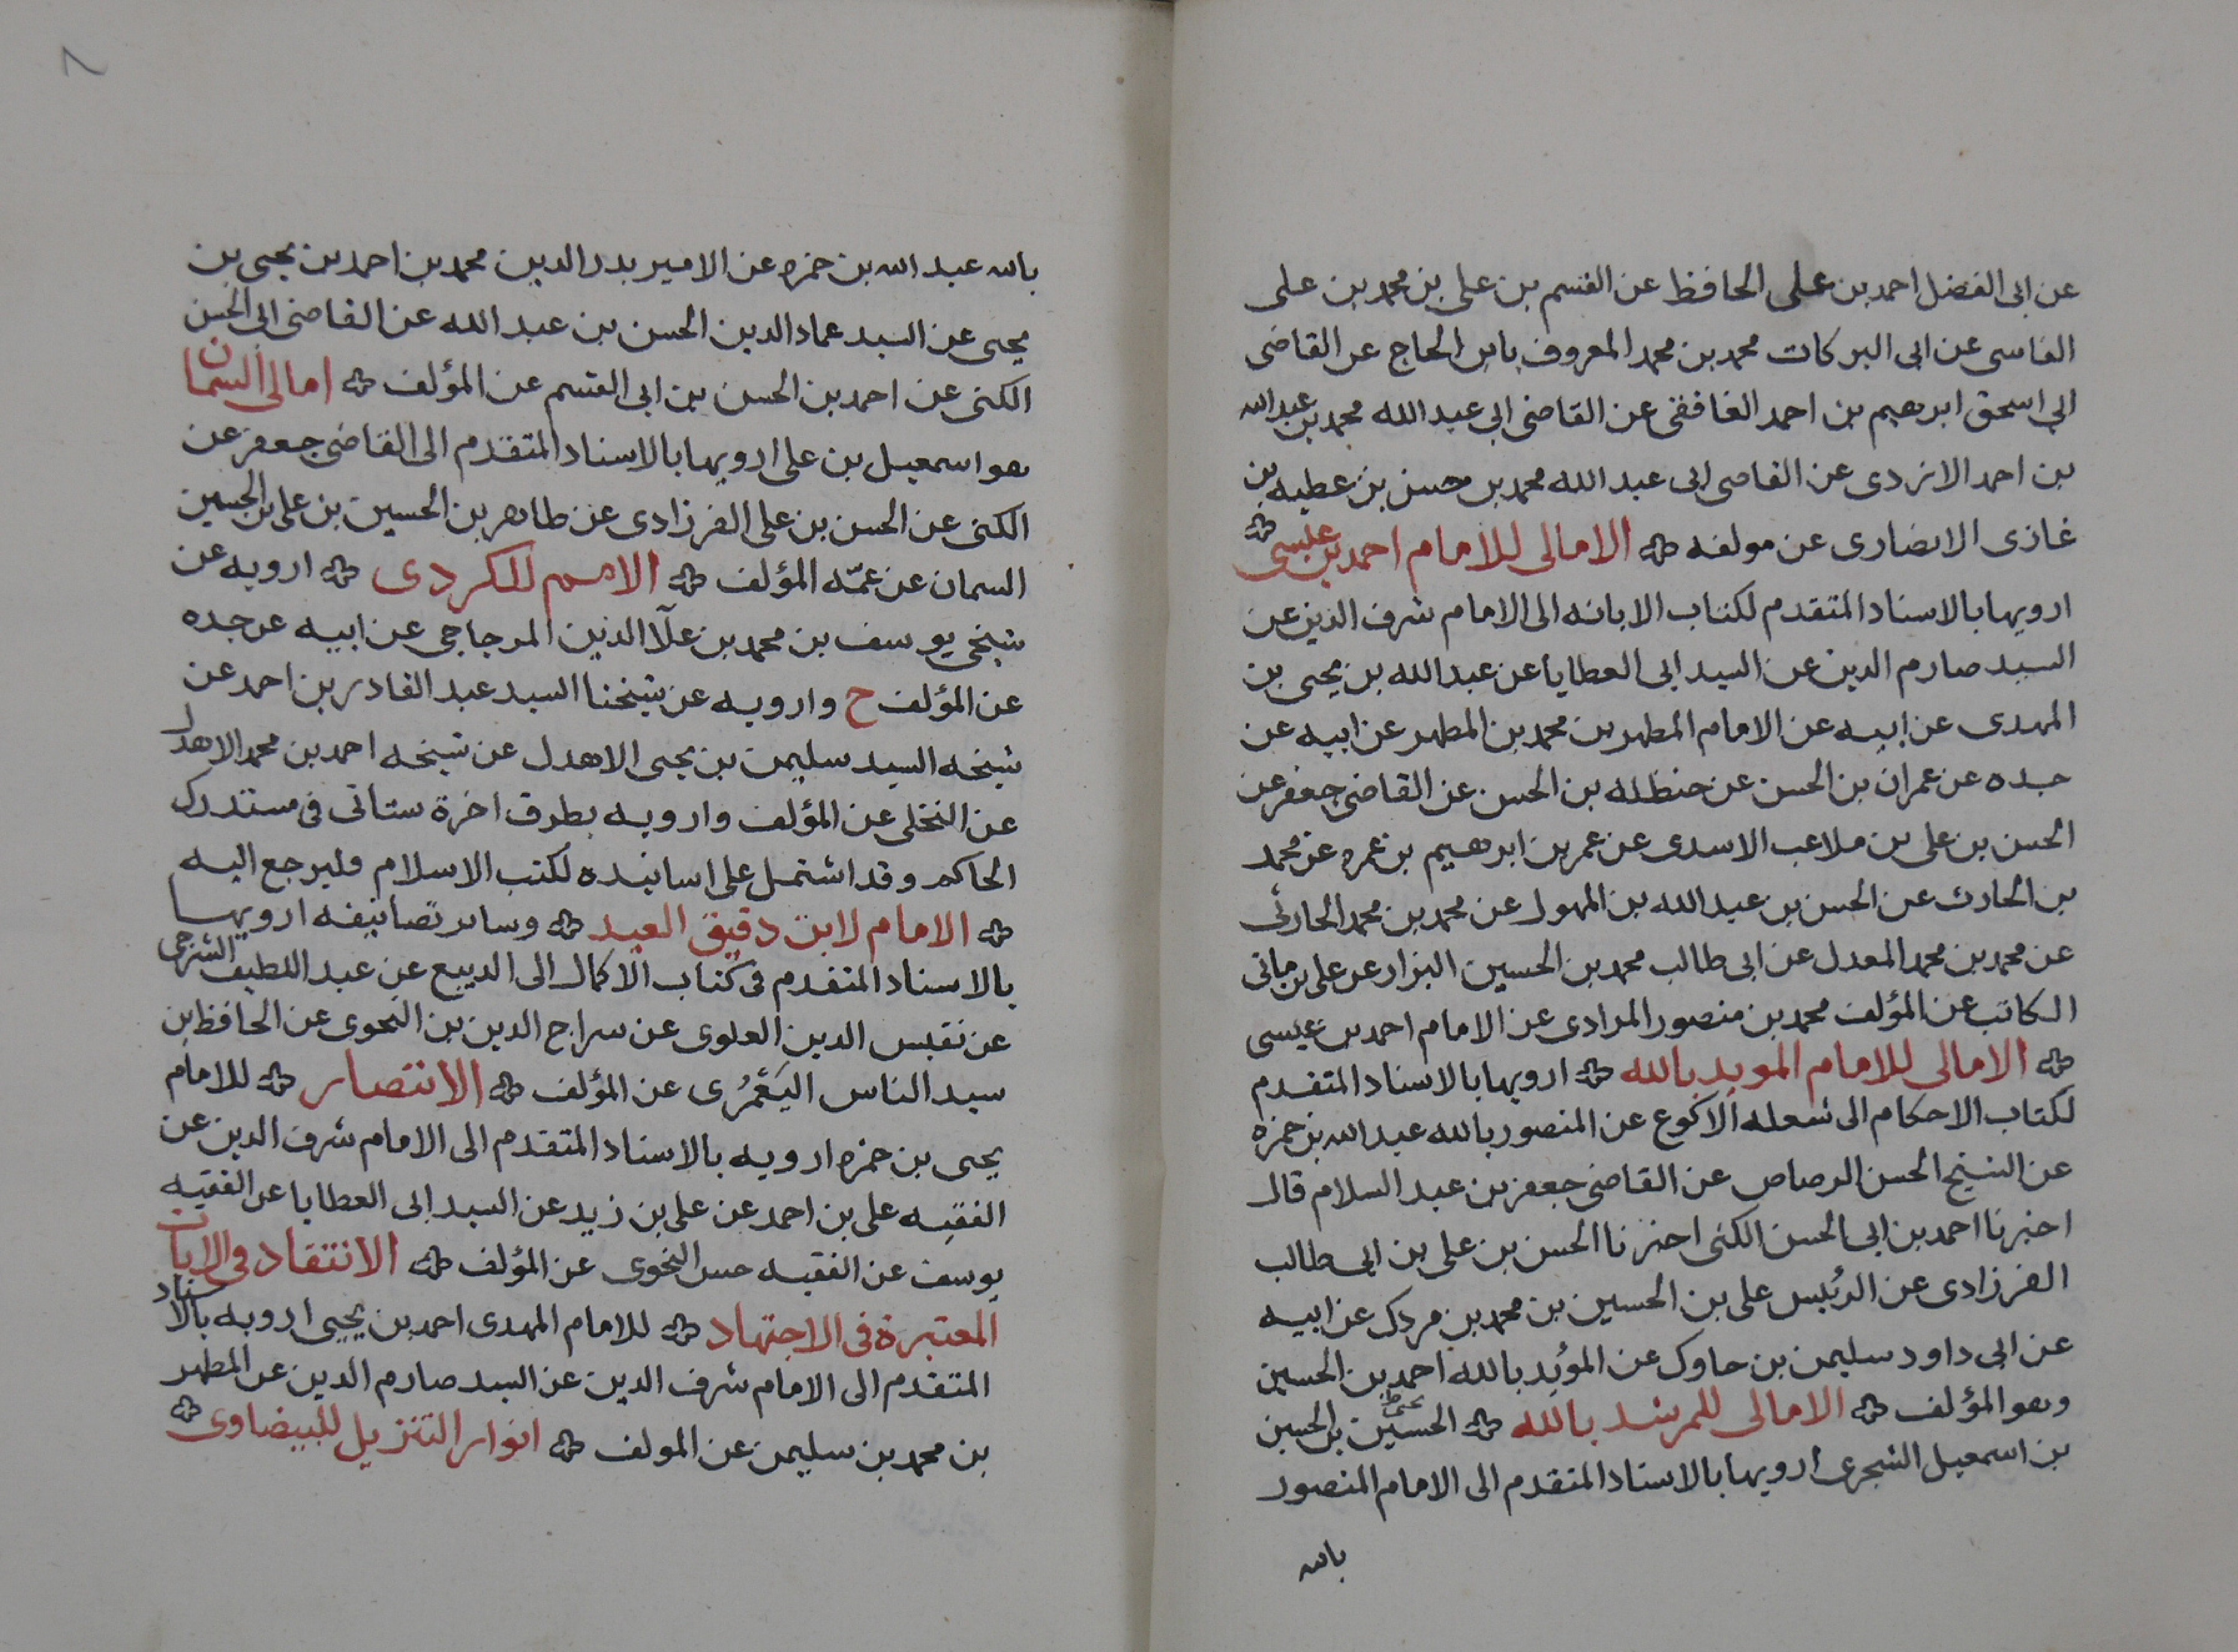 عن ابى الفضل احمد بن على الحافظ عن القسم بن على بن محمد بن على
الفاسى عن ابى البركات محمد بن محمد المعروف بابن الحاج عن القاضى
ابي اسحق ابرهيم بن احمد الغافقى عن القاضى ابى عبد الله محمد بن عبد الله
بن احمد الازدى عن القاضى ابى عبد الله محمد بن حسن بن عطيه بن
غازى الانصارى عن مولفه الامالى للامام احمد بن عيسى
ارويها بالاسناد المتقدم لكتاب الابانه الى الامام شرف الدين عن
السيد صارم الدين عن السيد ابى العطايا عن عبد الله بن يحيى بن
المهدى عن ابيه عن الامام المطهر بن محمد بن المطهر عن ابيه عن
جده عن عمران بن الحسن عن حنظله بن الحسن عن القاضى جعفر عن
الحسن بن على بن ملاعب الاسدى عن عمر بن ابرهيم بن حمزه عن محمد
بن الحارث عن الحسن بن عبد الله بن المهول عن محمد بن محمد الحارثى
عن محمد بن محمد المعدل عن ابى طالب محمد بن الحسين البزار عن على بن ماتى
الكاتب عن المؤلف محمد بن منصور المرادى عن الامام احمد بن عيسى
الامالى للامام المويد بالله ارويها بالاسناد المتقدم
لكتاب الاحكام الى شعله الاكوع عن المنصور بالله عبد الله بن حمزه
عن الشيخ الحسن الرصاص عن القاضى جعفر بن عبد السلام قال
اخبرنا احمد بن ابى الحسن الكنى اخبرنا الحسن بن على بن ابى طالب
الفرزادى عن الرئيس على بن الحسين بن محمد بن مردك عن ابيه
عن ابى داود سليمن بن جاوك عن المؤيد بالله احمد بن الحسين
وهو المؤلف الامالى للمرشد بالله الحسين يحيى بن الحسين
بن اسمعيل الشجرى ارويها بالاسناد المتقدم الى الامام المنصور
بالله
٨
بالله عبد الله بن حمزه عن الامير بدر الدين محمد بن احمد بن يحيى بن
يحيى عن السيد عماد الدين الحسن بن عبد الله عن القاضى ابى الحسن
الكنى عن احمد بن الحسن بن ابى القسم عن المؤلف امالى السمان
هو اسمعيل بن على ارويها بالاسناد المتقدم الى القاضى جعفر عن
الكنى عن الحسن بن على الفرزادى عن طاهر بن الحسين بن على بن الحسين
السمان عن عمّه المؤلف الامم للكردى ارويه عن
شيخى يوسف بن محمد بن علآ الدين المزجاجى عن ابيه عن جده
عن المؤلف ح وارويه عن شيخنا السيد عبد القادر بن احمد عن
شيخه السيد سليمن بن يحيى الاهدل عن شيخه احمد بن محمد الاهدل
عن النخلى عن المؤلف وارويه بطرق اخرة ستاتى فى مستدرك
الحاكم وقد اشتمل على اسانيده لكتب الاسلام فليرجع اليه
الامام لابن دقيق العيد وسائر تصانيفه ارويها
بالاسناد المتقدم فى كتاب الاكمال الى الديبع عن عبد اللطيف الشرجى
عن نفيس الدين العلوى عن سراج الدين بن النحوى عن الحافظ بن
سيد الناس اليَعْمُرى عن المؤلف الانتصار للامام
يحيى بن حمزه ارويه بالاسناد المتقدم الى الامام شرف الدين عن
الفقيه على بن احمد عن على بن زيد عن السيد ابى العطايا عن الفقيه
يوسف عن الفقيه حسن النحوى عن المؤلف الانتقاد فى الايات
المعتبرة فى الاجتهاد للامام المهدى احمد بن يحيى ارويه بالاسناد
المتقدم الى الامام شرف الدين عن السيد صارم الدين عن المطهر
بن محمد بن سليمن عن المولف انوار التنزيل للبيضاوى